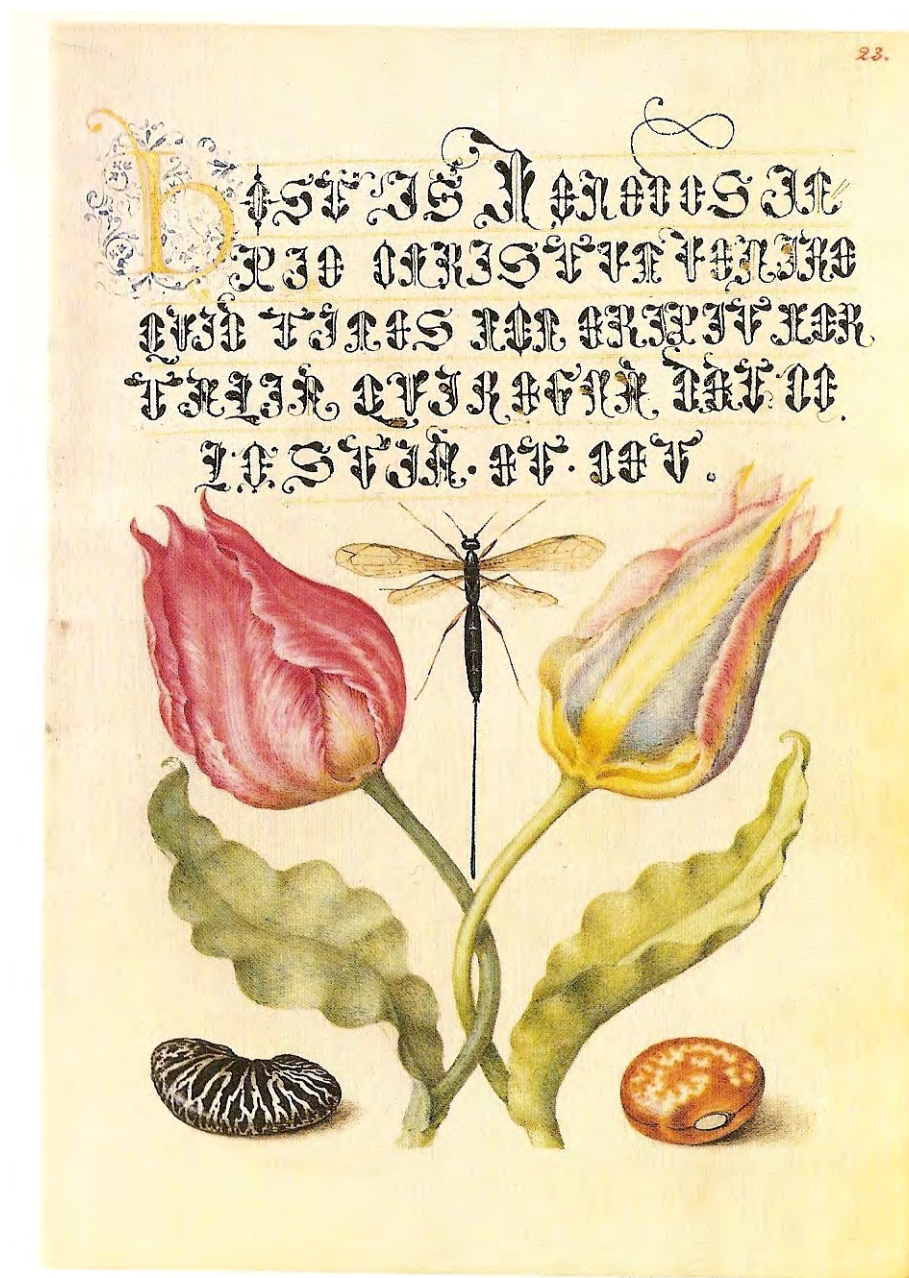 23.
hOSTIS HERODES IM
PIE CHRISTVM VENIRE
QVID TIMES NON ERIPIT MOR
TALIA QVI REGNA DAT CE
LESTIA. ET. CET.